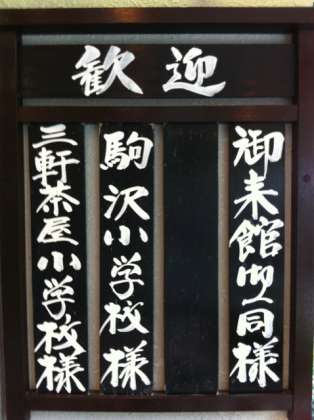 歓迎
御来館御一同様
駒沢小学校様
三軒茶屋小学校様